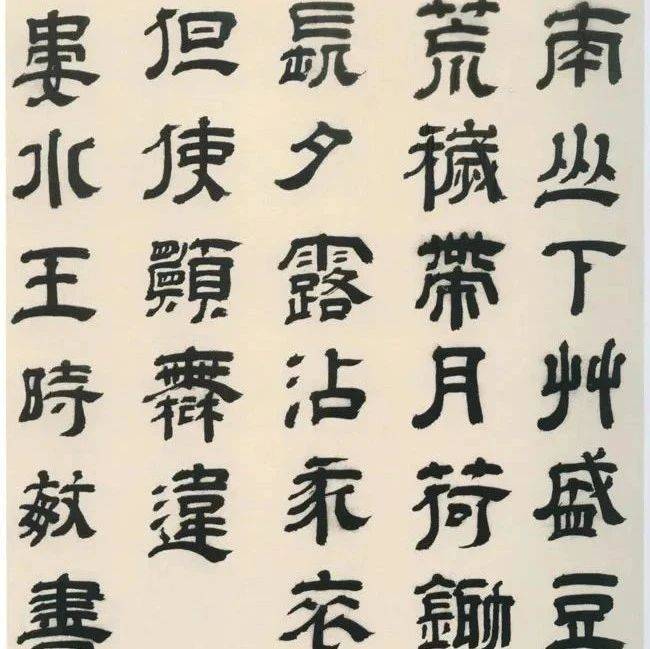 南山下艸盛豆
荒穢帶月荷鋤
長夕露沾我衣
但使願無違
婁水王時敏書